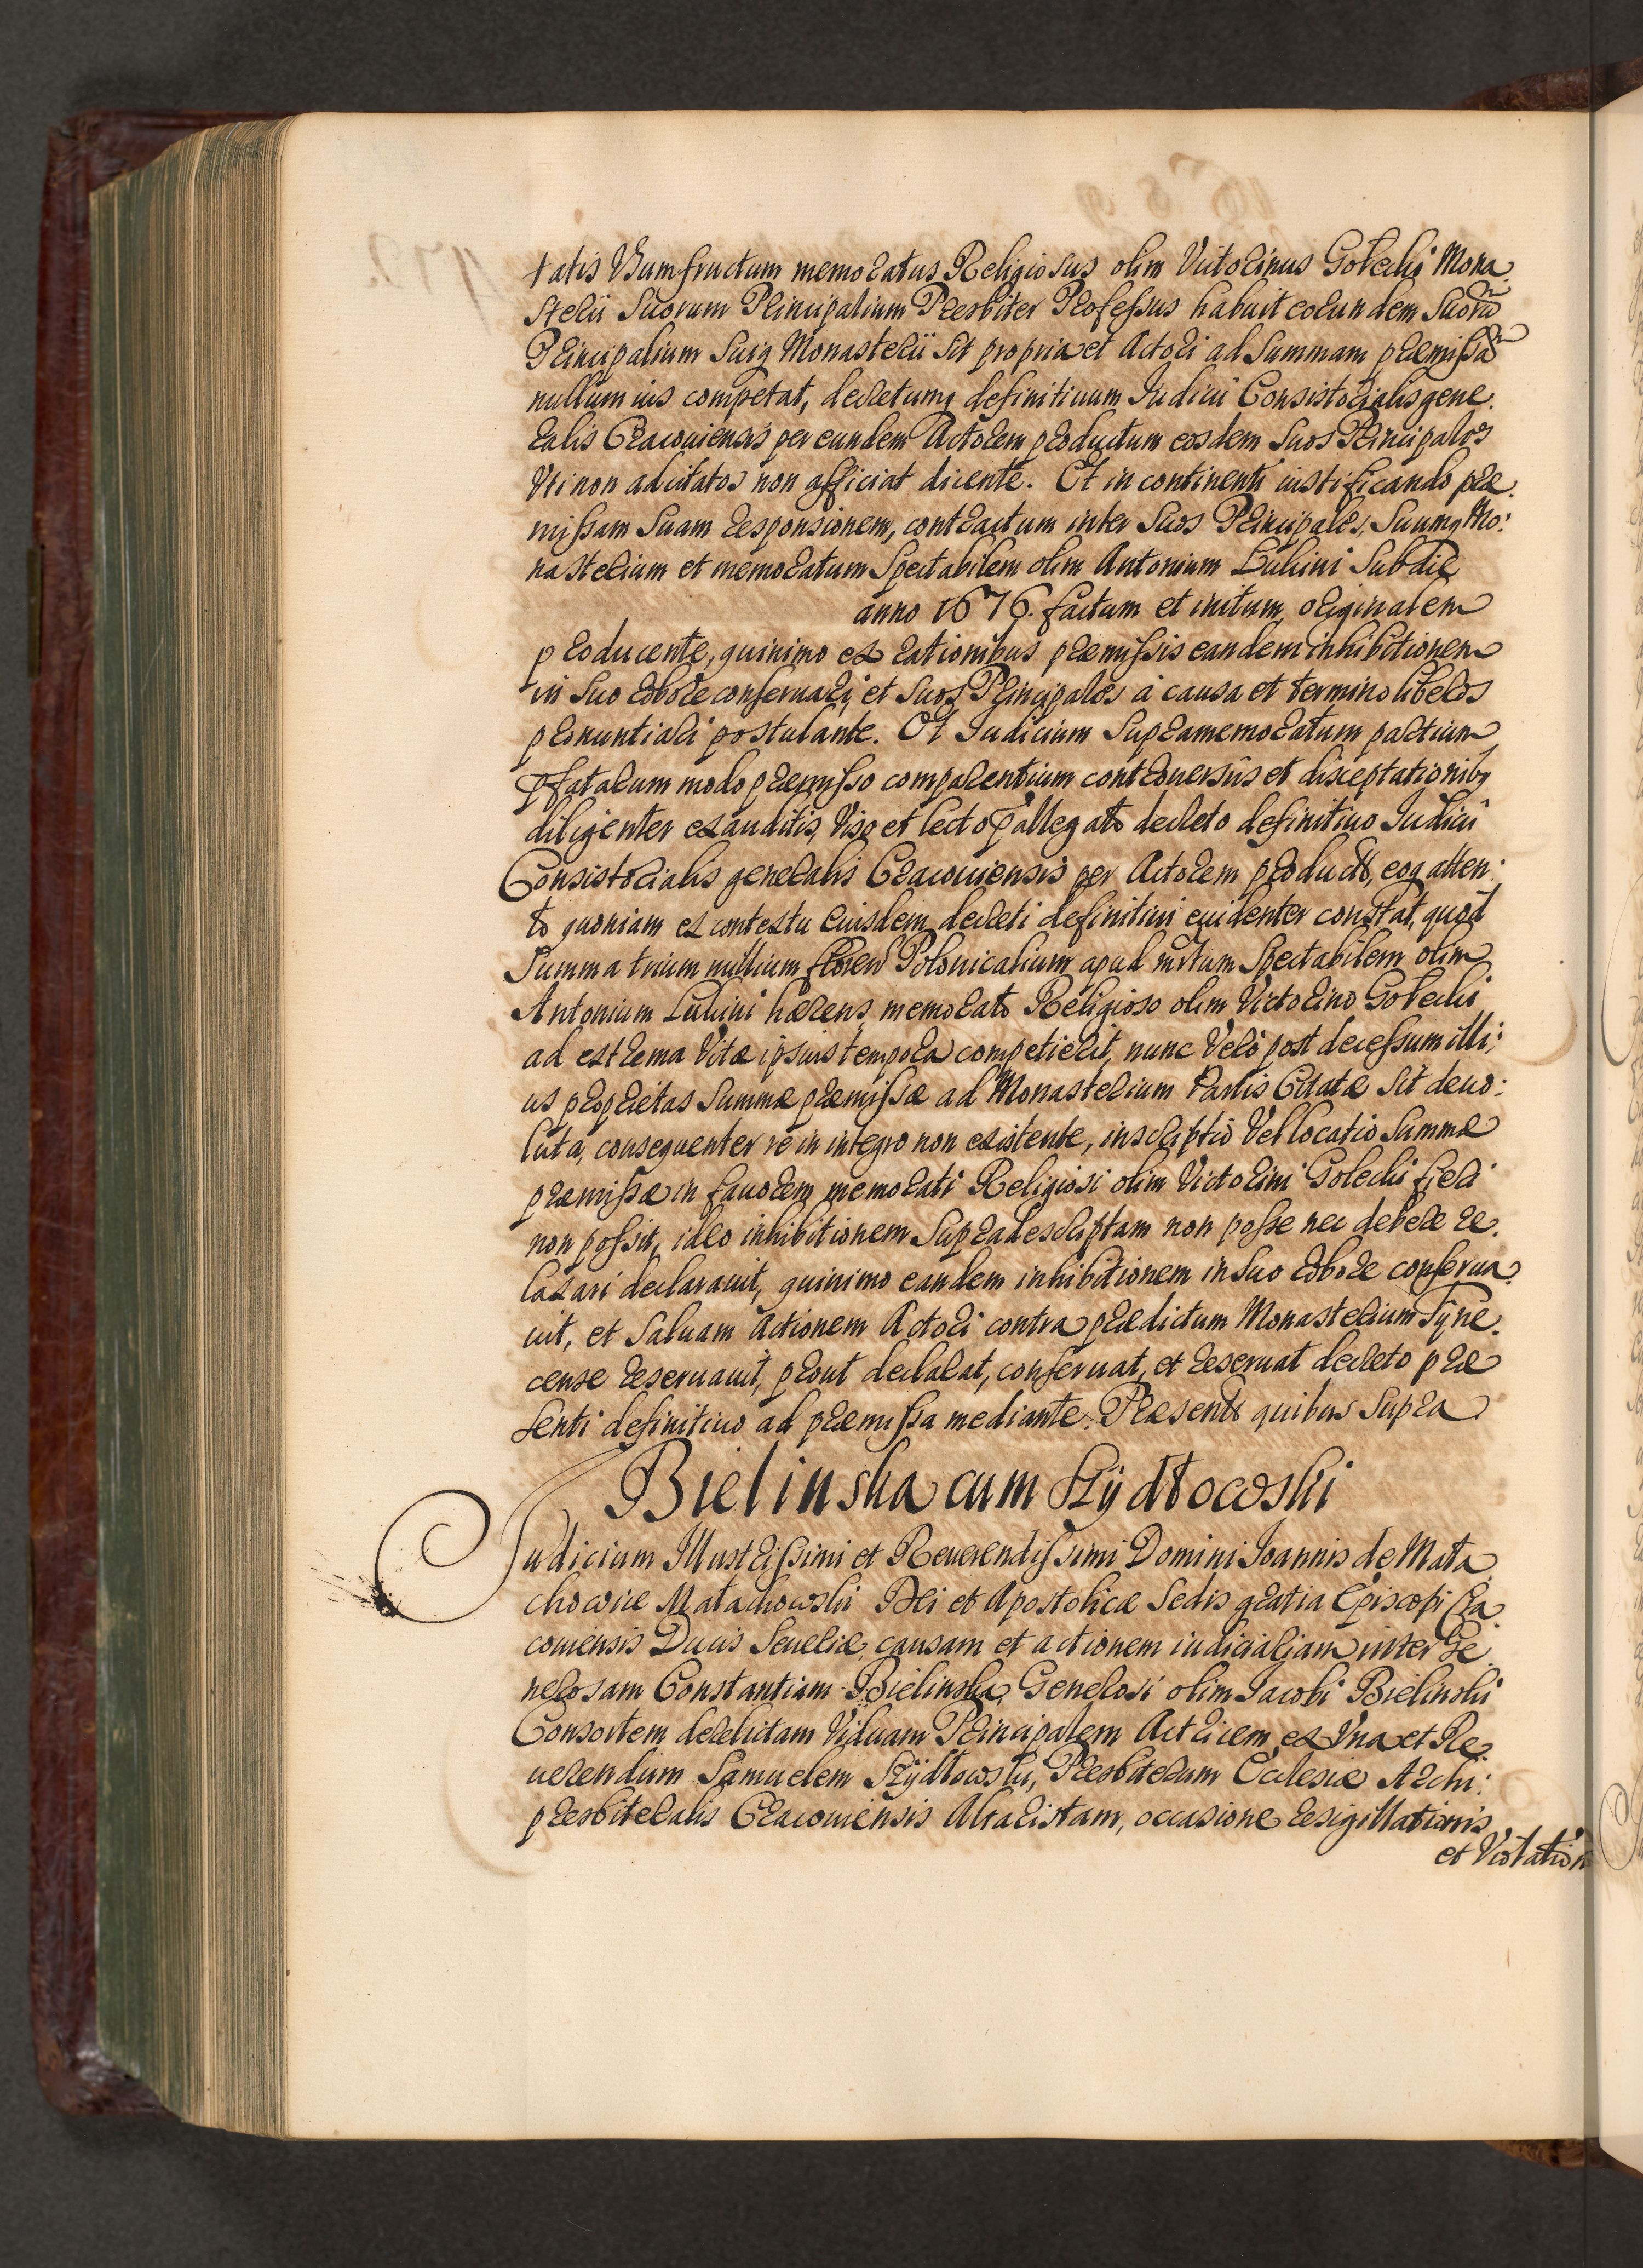 tatis Vsumfructum memoratus Religiosus olim Victorinus Golecki Mona.
sterii Suorum Principalium Presbiter Professus habuit eorundem Suorū
Principalium Suiq Monasterii sit propria et Actori ad Summam præmissā
nullum ius competat, decretumq definitiuum Iudicii Consistorialis gene.
ralis Cracouiensis per eundem Actorem productum eosdem Suos Principales
Vti non adcitatos non afficiat dicente. Et in continenti iustificando præ.
missam Suam responsionem, contractum inter Suos Principales, Suumq Mo:
nasterium et memoratum Spectabilem olim Antonium Lukini Sub die
anno 1676. factum et initum, originalem
producente, quinimo ex rationibus præmissis eandem inhibitionem
in Suo robore conseruari, et Suos Principales à causa et termino liberos
pronuntiari postulante. Et Iudicium Supramemoratum partium
pfatarum modo præmisso comparentium controuersiis et disceptationibq
diligenter exauditis, Viso et lecto pallegato decreto definitiuo Iudicii
Consistorialis generalis Cracouiensis per Actorem producto, eoq atten:
to quoniam ex contextu Eiusdem decreti definitiui euidenter constat, quod
Summa trium millium floren Polonicalium apud Spectabilem olim
Antonium Lukini hærens memorato Religioso olim Victorino Golecki
ad extrema Vitæ ipsius tempora competierit, nunc Verò post decessum illi:
us proprietas Summæ præmissæ ad Monasterium Partis Citatæ sit deuo:
luta, consequenter re in integro non existente, inscriptio Vel locatio Summæ
præmissæ in fauorem memorati Religiosi olim Victorini Golecki fieri
non possit, ideo inhibitionem Supradescriptam non posse nec debere re.
laxari declarauit, quinimo eandem inhibitionem in Suo robore conserua.
uit, et Saluam Actionem Actori contra prædictum Monasterium Tyne.
cense reseruauit, prout declarat, conseruat, et reseruat decreto præ
senti definitiuo ad præmissa mediante. Præsentb quibus Supra
Bielinska cum Szÿdłowski
Iudicium Illustrissimi et Reuerendissimi Domini Ioannis de Mała
chowice Małachowski Dei et Apostolicæ Sedis gratia Episcopi Cra
couiensis Ducis Seueriæ, causam et actionem iudiciariam inter Ge
nerosam Constantiam Bielinska, Generosi olim Iacobi Bielinski
Consortem derelictam Viduam Principalem Actricem, ex Vna et Re
uerendum Samuelem Szÿdłowski, Presbiterum Ecclesiæ Archi:
presbiteralis Cracouiensis Altaristam, occasione resigillationis
et Violation